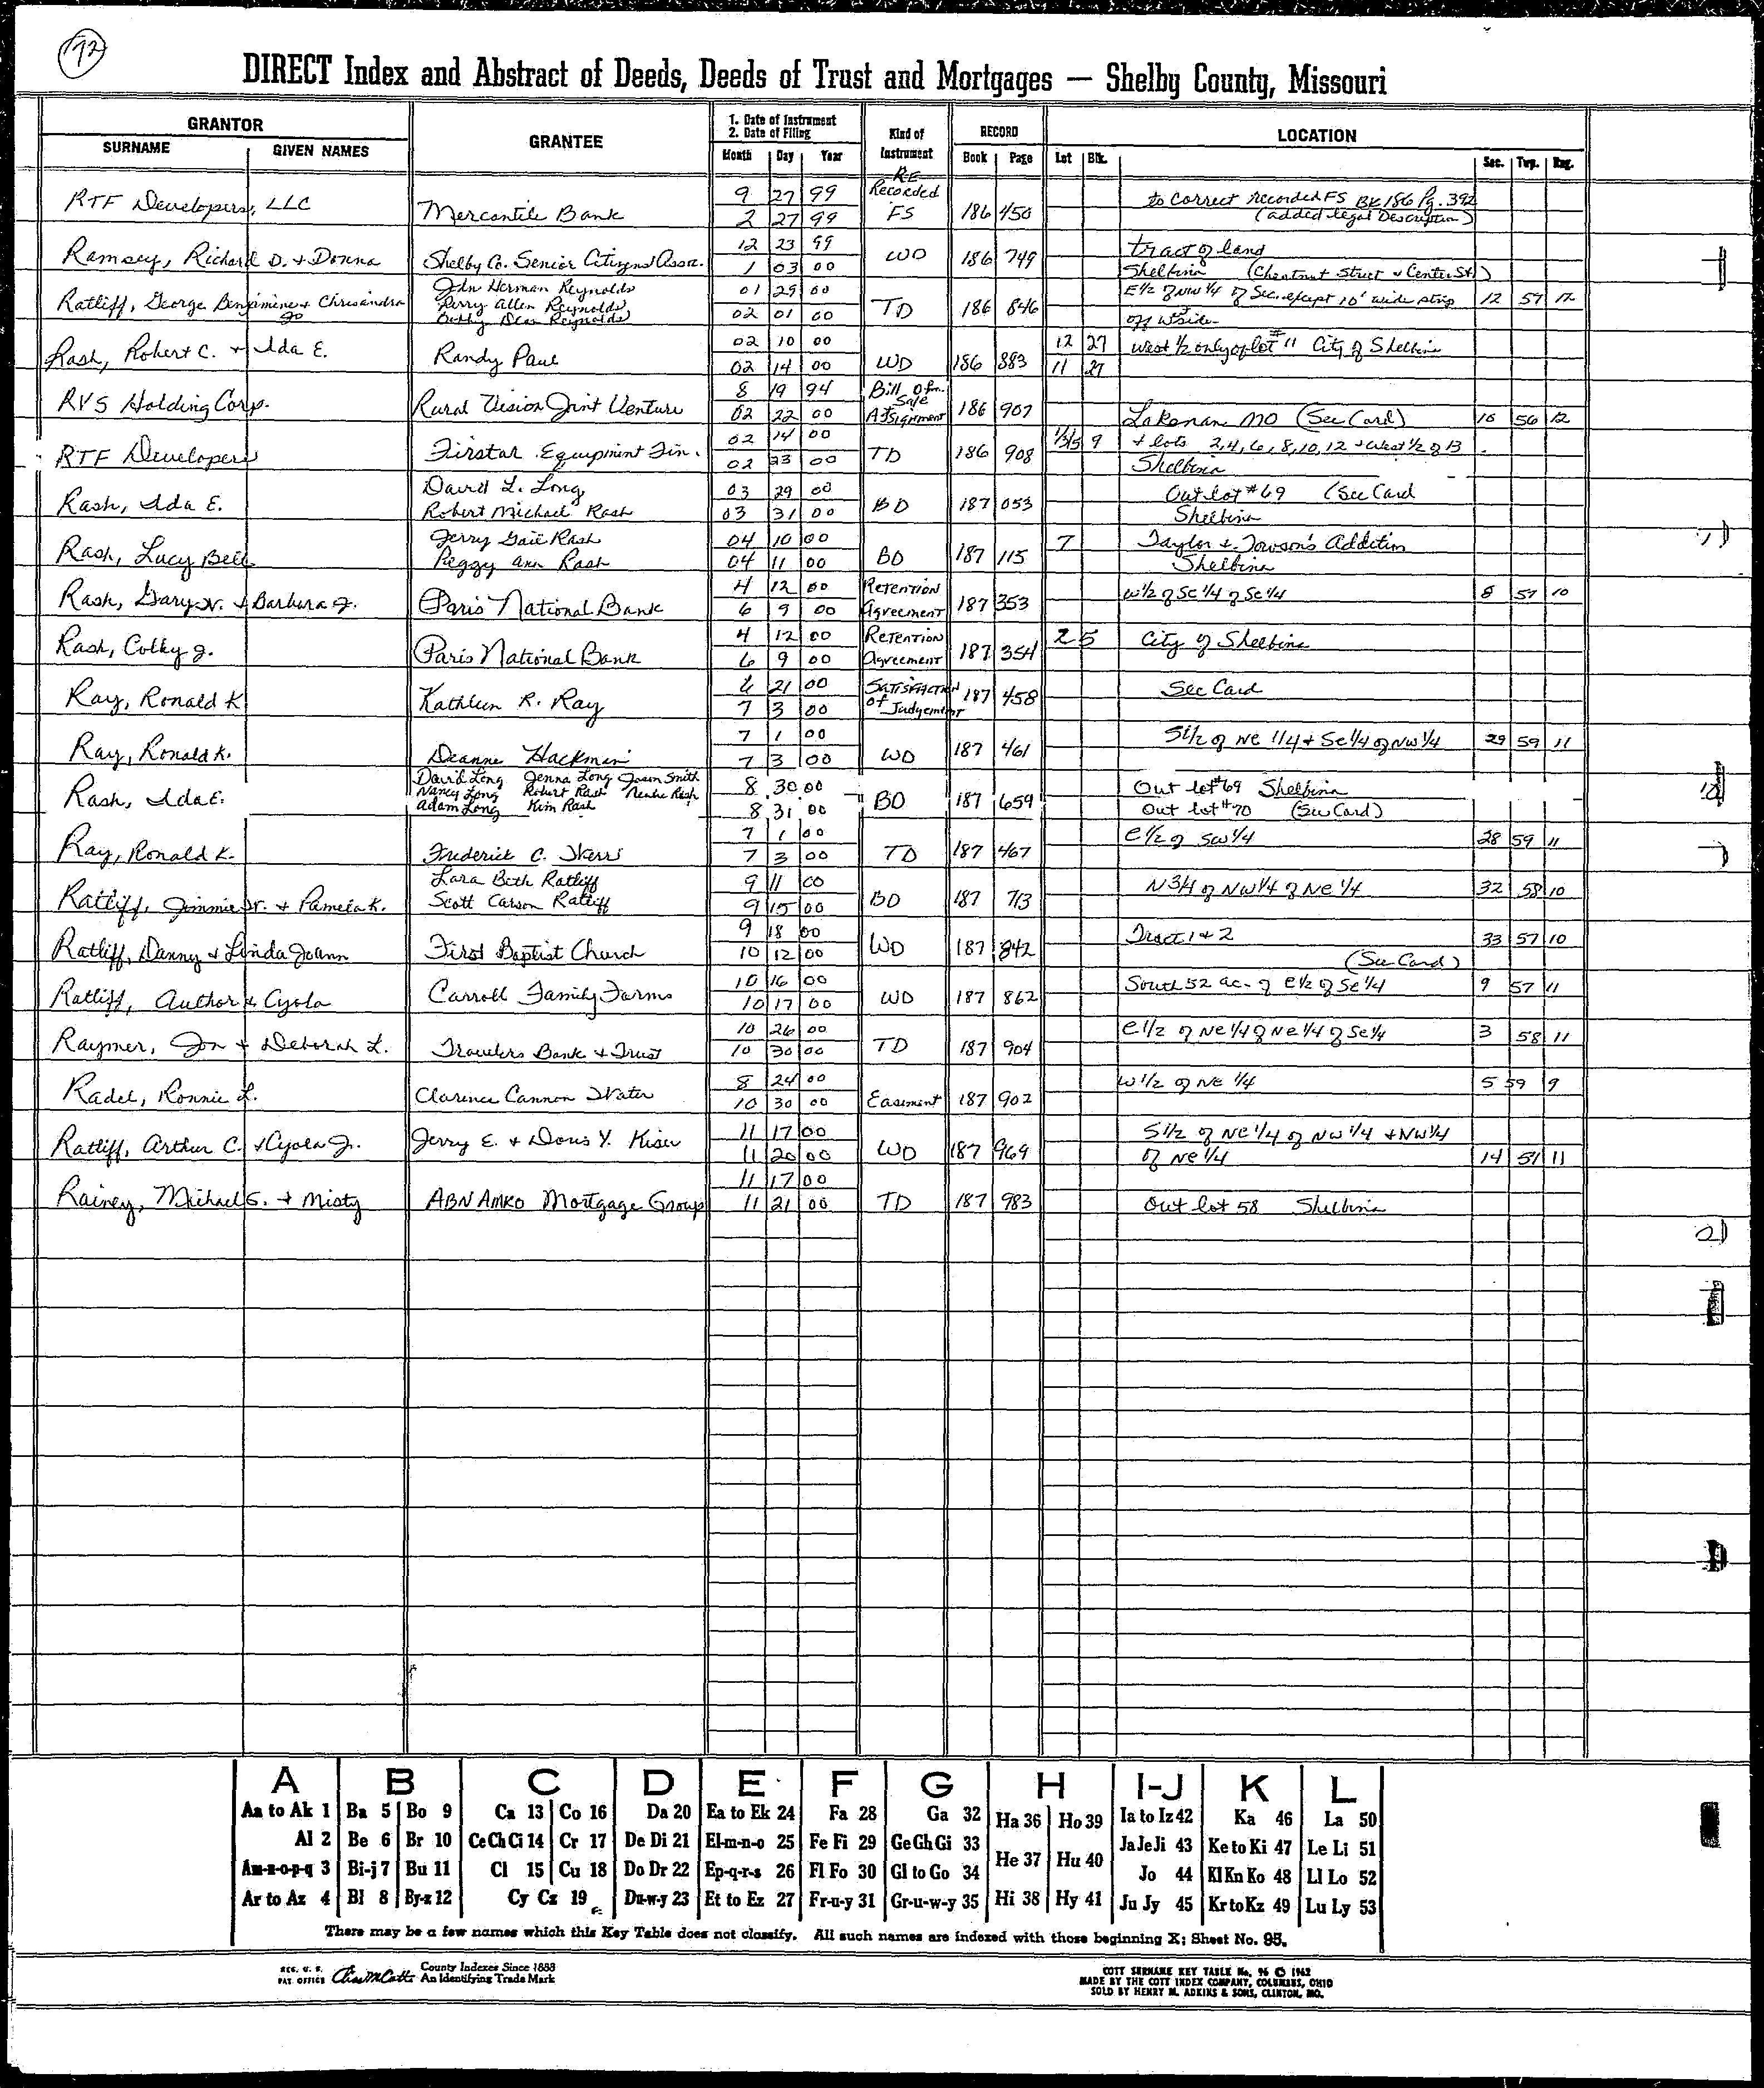 72
DIRECT Index and Abstract of Deeds, Deeds of Trust and Mortgages — Shelby County, Missouri
GRANTOR GRANTEE 1. Date of Instrument 2. Date of Filing Kind of Instrument RECORD LOCATION
SURNAME GIVEN NAMES Month Day Year Book Page Lot Blk. Sec. Twp. Rng.
RTF Developers, LLC Mercantile Bank 9 27 99 RE Recorded FS 186 450 to correct recorded FS BK 186 Pg. 392
2 27 99 (added legal Description)
Ramsey, Richard D. & Donna Shelby Co. Senior Citizens Assn. 12 23 99 WD 186 749 tract of land
1 03 00 Shelbina (Chestnut Street & Center St.)
Ratliff, George Benjamine & Chrisandra Jo John Herman Reynolds 01 29 00 TD 186 846 E1/2 of NW 1/4 of Sec. except 10' wide strip 12 57 12
Perry Allen Reynolds
Reynolds 02 01 00 off W side
Rash, Robert C. & Ida E. Randy Paul 02 10 00 WD 186 883 12 27 West 1/2 only of lot #11 City of Shelbina
02 14 00 11 27
RVS Holding Corp. Rural Vision Joint Venture 8 19 94 Bill of Sale Assignment 186 907
02 22 00 Lakenan MO (See Card) 10 56 12
RTF Developers Firstar Equipment Fin. 02 14 00 TD 186 908 1/3/5 9 + lots 2,4,6,8,10,12 + West 1/2 of 13
02 23 00 Shelbina
Rash, Ida E. David L. Long 03 29 00 BD 187 053 Out lot #69 (See Card
Robert Michael Rash 03 31 00 Shelbina
Rash, Lucy Bell Jerry Gail Rash 04 10 00 BD 187 115 7 Taylor & Towson's Addition
Peggy Ann Rash 04 11 00 Shelbina
Rash, Gary W. & Barbara J. Paris National Bank 4 12 00 Retention Agreement 187 353 W1/2 of Se 1/4 of Se 1/4 8 57 10
6 9 00
Rash, Colby J. Paris National Bank 4 12 00 Retention Agreement 187 354 2 5 City of Shelbina
6 9 00
Ray, Ronald K Kathleen R. Ray 6 21 00 Satisfaction of Judgement 187 458 See Card
7 3 00
Ray, Ronald K. Deanne Hackman 7 1 00 WD 187 461 S1/2 of NE 1/4 + Se 1/4 of NW 1/4 29 59 11
7 3 00
Rash, Ida E. David Long Jenna Long Jason Smith 8 30 00 BD 187 659 Out lot #69 Shelbina
Nancy Long Robert Rash Rash
Adam Long Kim Rash 8 31 00 Out lot #70 (See Card)
Ray, Ronald K. Frederick C. 7 1 00 TD 187 467 E1/2 of SW 1/4 28 59 11
7 3 00
Ratliff, Jimmie W. & Pamela K. Lara Beth Ratliff 9 11 00 BD 187 713 N 3/4 of NW 1/4 of NE 1/4 32 58 10
Scott Carson Ratliff 9 15 00
Ratliff, Danny & Linda Joann First Baptist Church 9 18 00 WD 187 842 Tract 1 & 2 33 57 10
10 12 00 (See Card)
Ratliff, Author & Cyola Carroll Family Farms 10 16 00 WD 187 862 South 52 ac. of E1/2 of Se 1/4 9 57 11
10 17 00
Raymer, Jon & Deborah L. Travelers Bank & Trust 10 26 00 TD 187 904 E1/2 of NE 1/4 of NE 1/4 of Se 1/4 3 58 11
10 30 00
Radel, Ronnie L. Clarence Cannon Water 8 24 00 Easement 187 902 W1/2 of NE 1/4 5 59 9
10 30 00
Ratliff, Arthur C. & Cyola J. Jerry E. & Doris Y. Kiser 11 17 00 WD 187 969 S1/2 of NE 1/4 of NW 1/4 + NW 1/4
11 20 00 of NE 1/4 14 57 11
Rainey, Michael S. & Misty ABN AMRO Mortgage Group 11 17 00 TD 187 983 Out lot 58 Shelbina
11 21 00
A B C D E F G H I-J K L
Aa to Ak 1 Ba 5 Bo 9 Ca 13 Co 16 Da 20 Ea to Ek 24 Fa 28 Ga 32 Ha 36 Ho 39 Ia to Iz 42 Ka 46 La 50
Al 2 Be 6 Br 10 Ce Ch Ci 14 Cr 17 De Di 21 El-m-n-o 25 Fe Fi 29 Ge Gh Gi 33 He 37 Hu 40 Ja Je Ji 43 Ke to Ki 47 Le Li 51
Am-n-o-p-q 3 Bi-j 7 Bu 11 Cl 15 Cu 18 Do Dr 22 Ep-q-r-s 26 Fl Fo 30 Gl to Go 34 Jo 44 Kl Kn Ko 48 Ll Lo 52
Ar to Az 4 Bl 8 By-z 12 Cy Cz 19 Du-w-y 23 Et to Ez 27 Fr-u-y 31 Gr-u-w-y 35 Hi 38 Hy 41 Ju Jy 45 Kr to Kz 49 Lu Ly 53
There may be a few names which this Key Table does not classify. All such names are indexed with those beginning X; Sheet No. 95.
REG. U. S. PAT. OFFICE County Indexes Since 1888
An Identifying Trade Mark
COTT SURNAME KEY TABLE No. 96 © 1962
MADE BY THE COTT INDEX COMPANY, COLUMBUS, OHIO
SOLD BY HENRY M. ADKINS & SONS, CLINTON, MO.